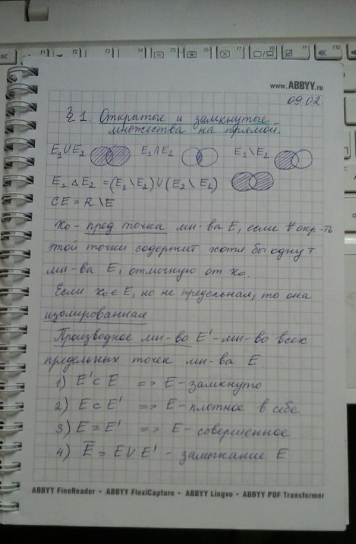 www.ABBYY.ru
09.02
§1. Открытые и замкнутые
множества на прямой.
E₁∪E₂ E₁∩E₂ E₁\E₂
E₁ △ E₂ = (E₁\E₂)∪(E₂\E₁)
CE = R\E
x₀ - пред точка мн-ва E, если ∀ окр-ть
той точки содержит хотя бы одну т
мн-ва E, отличную от x₀.
Если x₀ ∈ E, но не предельная, то она
изолированная
Производное мн-во E' - мн-во всех
предельных точек мн-ва E
1) E' ⊂ E => E - замкнуто
2) E ⊂ E' => E - плотное в себе
3) E = E' => E - совершенное
4) E̅ = E ∪ E' - замыкание E
ABBYY FineReader • ABBYY FlexiCapture • ABBYY Lingvo • ABBYY PDF Transformer